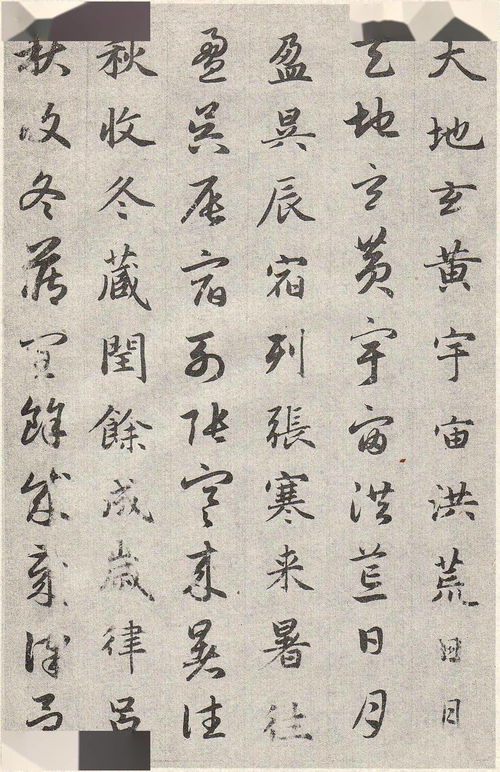 天地玄黄宇宙洪荒日月
天地玄黄宇宙洪荒日月
盈昃辰宿列張寒来暑往
盈昃辰宿列張寒来暑往
秋收冬藏閏餘成歲律呂
秋收冬藏閏餘成歲律呂